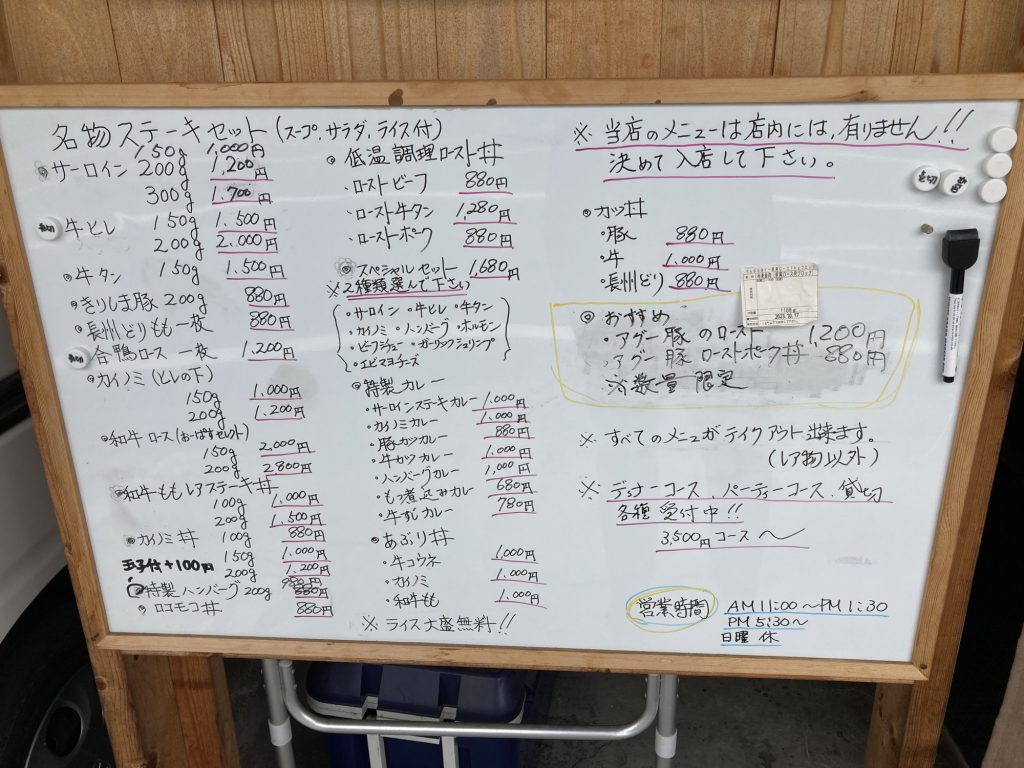 名物ステーキセット(スープ、サラダ、ライス付)
150g 1,000円
サーロイン 200g 1,200円
300g 1,700円
牛ヒレ 150g 1,500円
200g 2,000円
牛タン 150g 1,500円
きりしま豚 200g 880円
長州どりもも一枚 880円
合鴨ロース 一枚 1,200円
カイノミ(ヒレの下)
150g 1,000円
200g 1,200円
和牛ロース(おーばすせれくと)
150g 2,000円
200g 2,800円
和牛ももレアステーキ丼
100g 1,000円
200g 1,500円
カイノミ丼 100g 880円
150g 1,000円
玉子付+100円 200g 1,200円
特製ハンバーグ 200g 880円
ロコモコ丼 880円
低温調理ロースト丼
・ローストビーフ 880円
・ロースト牛タン 1,280円
・ローストポーク 880円
スペシャルセット 1,680円
※2種類選んで下さい
・サーロイン ・牛ヒレ ・牛タン
・カイノミ ・ハンバーグ ・ホルモン
・ビーフシチュー ・ガーリックシュリンプ
・エビマヨチーズ
特製カレー
・サーロインステーキカレー 1,000円
・カイノミカレー 1,000円
・豚カツカレー 880円
・牛カツカレー 1,000円
・ハンバーグカレー 1,000円
・もつ煮込みカレー 680円
・牛すじカレー 780円
◎あぶり丼
・牛コウネ 1,000円
・カイノミ 1,000円
・和牛もも 1,000円
※ライス大盛無料!!
※当店のメニューは店内には、有りません!!
決めて入店して下さい。
売切
売切
◎カツ丼
・豚 880円
・牛 1,000円
・長州どり 880円
◎おすすめ
・アグー豚のロース 1,200円
・アグー豚ローストポーク丼 880円
※数量限定
※すべてのメニュがテイクアウト出来ます。
(レア物以外)
※ディナーコース、パーティーコース、貸切
各種受付中!!
3,500円コース〜
営業時間 AM11:00〜PM1:30
PM5:30〜
日曜 休